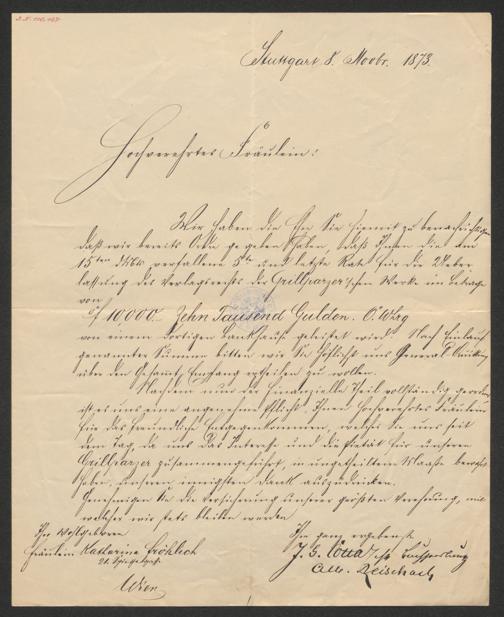 Stuttgart 8. Novbr. 1873.
Hochverehrtes Fräulein!
Wir haben die Ehre Sie hiemit zu benachrichtigen
daß wir bereits Ordre gegeben haben, daß Ihnen die am
15ten dieses verfallene 5te und letzte Rate für die Ueber-
lassung des Verlagsrechts der Grillparzer'schen Werke im Betrage
von
10000.- Zehn Tausend Gulden. Ö. Whrg
von einem dortigen Bankhause geleistet wird. Nach Einlauf
genannter Summe bitten wir Sie höflichst uns General Quittung
über den Gesamt-Empfang ertheilen zu wollen.
Nachdem nun der finanzielle Theil vollständig geordnet
ist es uns eine angenehme Pflicht Ihnen hochverehrtes Fräulein
für das freundliche Entgegenkommen, welches Sie uns seit
dem Tag, da uns das Interesse und die Pietät für unseren
Grillparzer zusammengeführt, in ungetheiltem Maaße bewiesen
haben, unseren innigsten Dank auszudrücken.
Genehmigen Sie die Versicherung unserer größten Verehrung, mit
welcher wir stets bleiben werden
Ihr Wohlgeboren
Fräulein Katharine Fröhlich
21. Spiegelgasse
Wien
Ihre ganz ergebenste
J. G. Cotta'sche Buchhandlung
Reischach